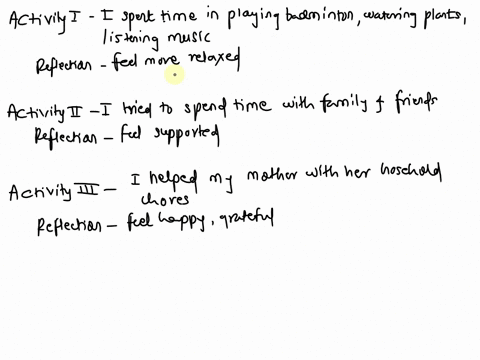 Activity I - I spent time in playing badminton, watering plants,
listening music
Reflection - feel more relaxed
Activity II - I tried to spend time with family & friends
Reflection - feel supported
Activity III - I helped my mother with her hosehold
chores
Reflection - feel happy, grateful